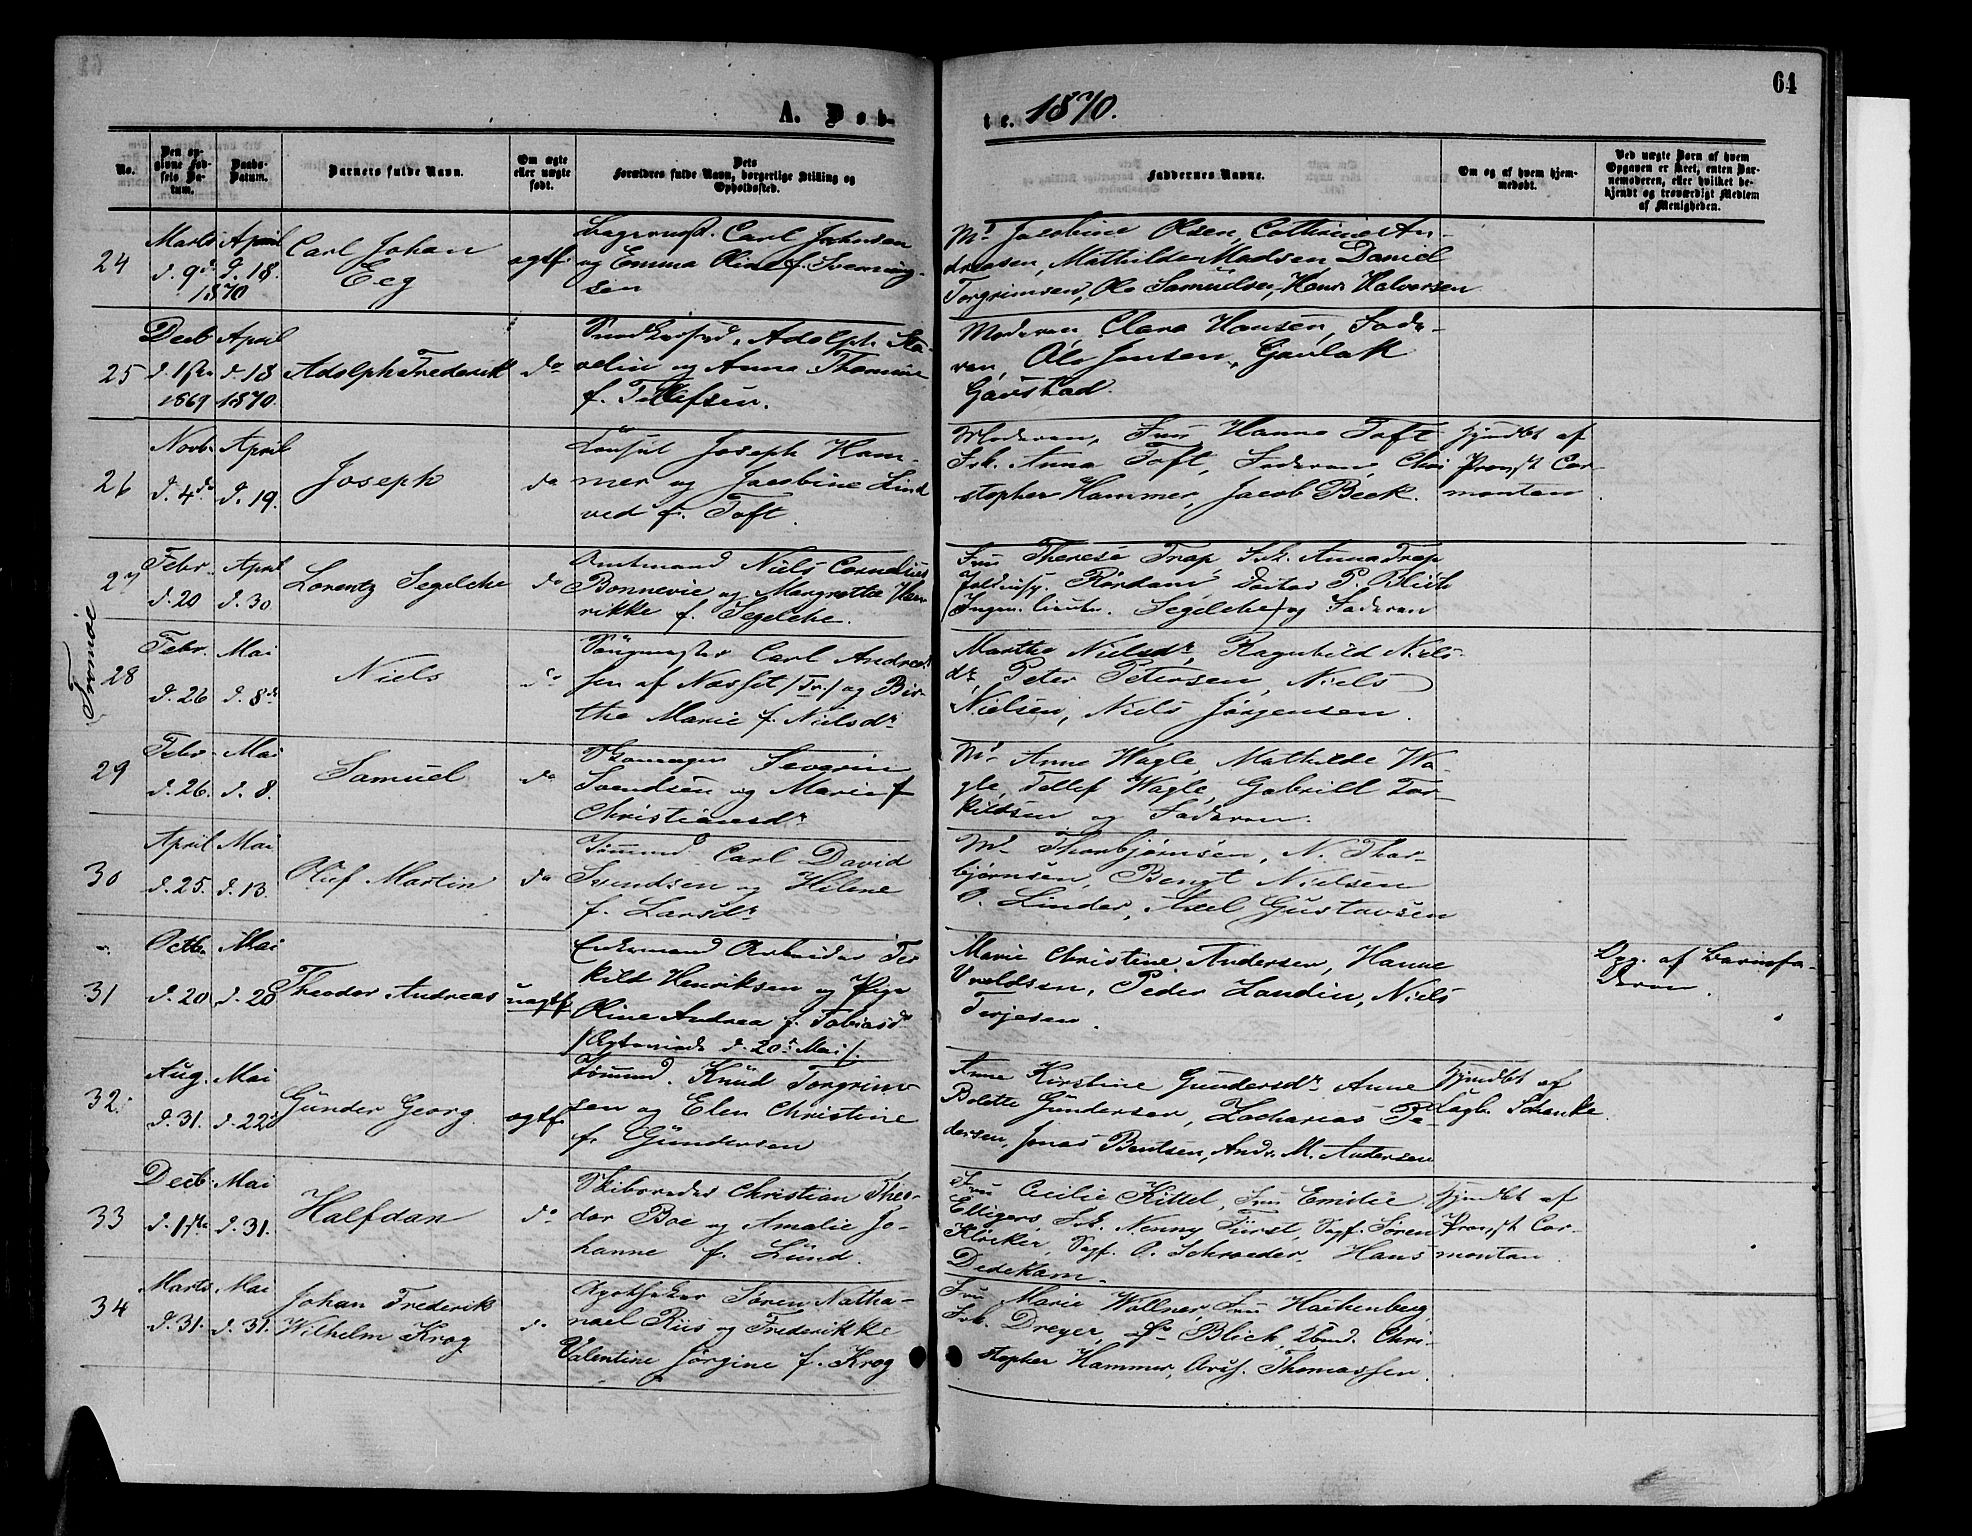 61
A. Døb-
te. 1870.
No.
Den op-
givne Fød-
sels Da-
tum.
Daabs-
Datum.
Barnets fulde Navn.
Om ægte
eller uægte
født.
Dets
Forældres fulde Navn, borgerlige Stilling og
Opholdssted.
Faddernes Navne.
Om og af hvem hjem-
medøbt.
Ved uægte Børn af hvem
Opgaven er skeet, enten Bar-
nemoderen, eller hvilket be-
kjendt og troværdigt Medlem
af Menigheden.
24
Marts
d. 9de
1870
April
d. 18.
Carl Johan
Eeg
ægtf.
Carl Johnsen
og Emma Oline f. Svenning-
sen
Mr. Jacobine Olsen, Cathrine An-
dreasen, Mathilde Madsen Daniel
Torgrimsen, Ole Samuelsen, Hans Halvorsen
25
Decb
1869
April
d. 18
1870.
Adolph Frederik
do
Adolph Sta-
velin og Anna Thomine
f. Tellefsen.
Moderen, Clara Hansen, Fade-
ren, Ole Jensen, Gunlak
Gavstad.
26
Novb.
d. 4de
April
d. 19.
Joseph
do
Consul Joseph Ham-
mer og Jacobine Lind
ved f. Toft.
Moderen, Fru Hanna Toft
Frk. Anna Toft, Faderen, Chri
stopher Hammer, Jacob Beck.
Hjmdbt af
Provst Cor-
montan
27
Febr.
d. 20
April
d. 30
Lorentz Segelcke
do
Amtmand Niels Cornelius
Bonnevie og Margrethe Hen
rikke f. Segelcke.
Fru Therese Trap, Frk. Anna Trap
Rørdam, Doctor P. Blich
(Ingen. lieutn. Segelcke) og Faderen
Tromøe
28
Febr.
d. 26
Mai
d. 8de
Niels
do
Carl Andrea-
sen af Næset (Tr.) og Bir-
the Marie f. Nielsdr.
Marthe Nielsdr, Ragnhild Niels-
dr. Peter Petersen, Niels
Nielsen, Niels Jørgensen.
29
Febr.
d. 26.
Mai
d. 8.
Samuel
do
Skomager Severin
Svendsen og Marie f
Christiansdr.
Mr. Anne Wagle, Mathilde Wa-
gle, Tellef Wagle, Gabriel Tor-
kildsen og Faderen.
30
April
d. 25.
Mai
d. 13.
Oluf Martin
do
Tømmd. Carl David
Svendsen og Helene
f. Larsdr.
Mr. Thorbjørnsen, N. Thor-
bjørnsen, Bengt Nielsen
O. Linder, Axel Gustavsen
31
Octb.
d. 20
Mai
d. 20
Theodor Andreas
uægtf.
Enkemand Arbeider Ter
kild Henriksen og Pige
Oline Andrea f. Tobiasdr
(Ægteviede d. 20de Mai).
Marie Christine Andersen, Hanne
Peder Landin, Niels
Terjesen.
Opg. af Barnefa-
deren.
32
Aug.
d. 31.
Mai
d. 22de
Gunder Georg
ægtf.
Tømmd. Knud Torgrim-
sen og Elen Christine
f. Gundersen
Anne Kirstine Gundersdr. Anne
Bolette Gundersen, Zacharias Pe-
dersen, Jonas Bentsen, Andr. M. Andersen
Hjmdbt af
Schanke.
33
Decb.
Mai
d. 31.
Halfdan
do
Skibsreder Christian Theo-
dor Boe og Amalie Jo-
hanne f. Lund.
Fru Cecilie Kittel, Fru Emilie
Elligers, Frk. Nenny Fürst, Sagf. Søren
Klocker, Sagf. O. Schroeder, Hans
Dedekam.
Hjmdbt af
Provst Cor-
montan
34
Marts
d. 31.
Mai
d. 31.
Johan Frederik
Wilhelm Krog
do
Apotheker Søren Natha-
nael Riis og Frederikke
Valentine Jørgine f. Krog
Fru Marie Wollner, Fru Hachenberg
Frk. Dreyer, Dr. Blich, Chri-
stopher Hammer, Thomassen.